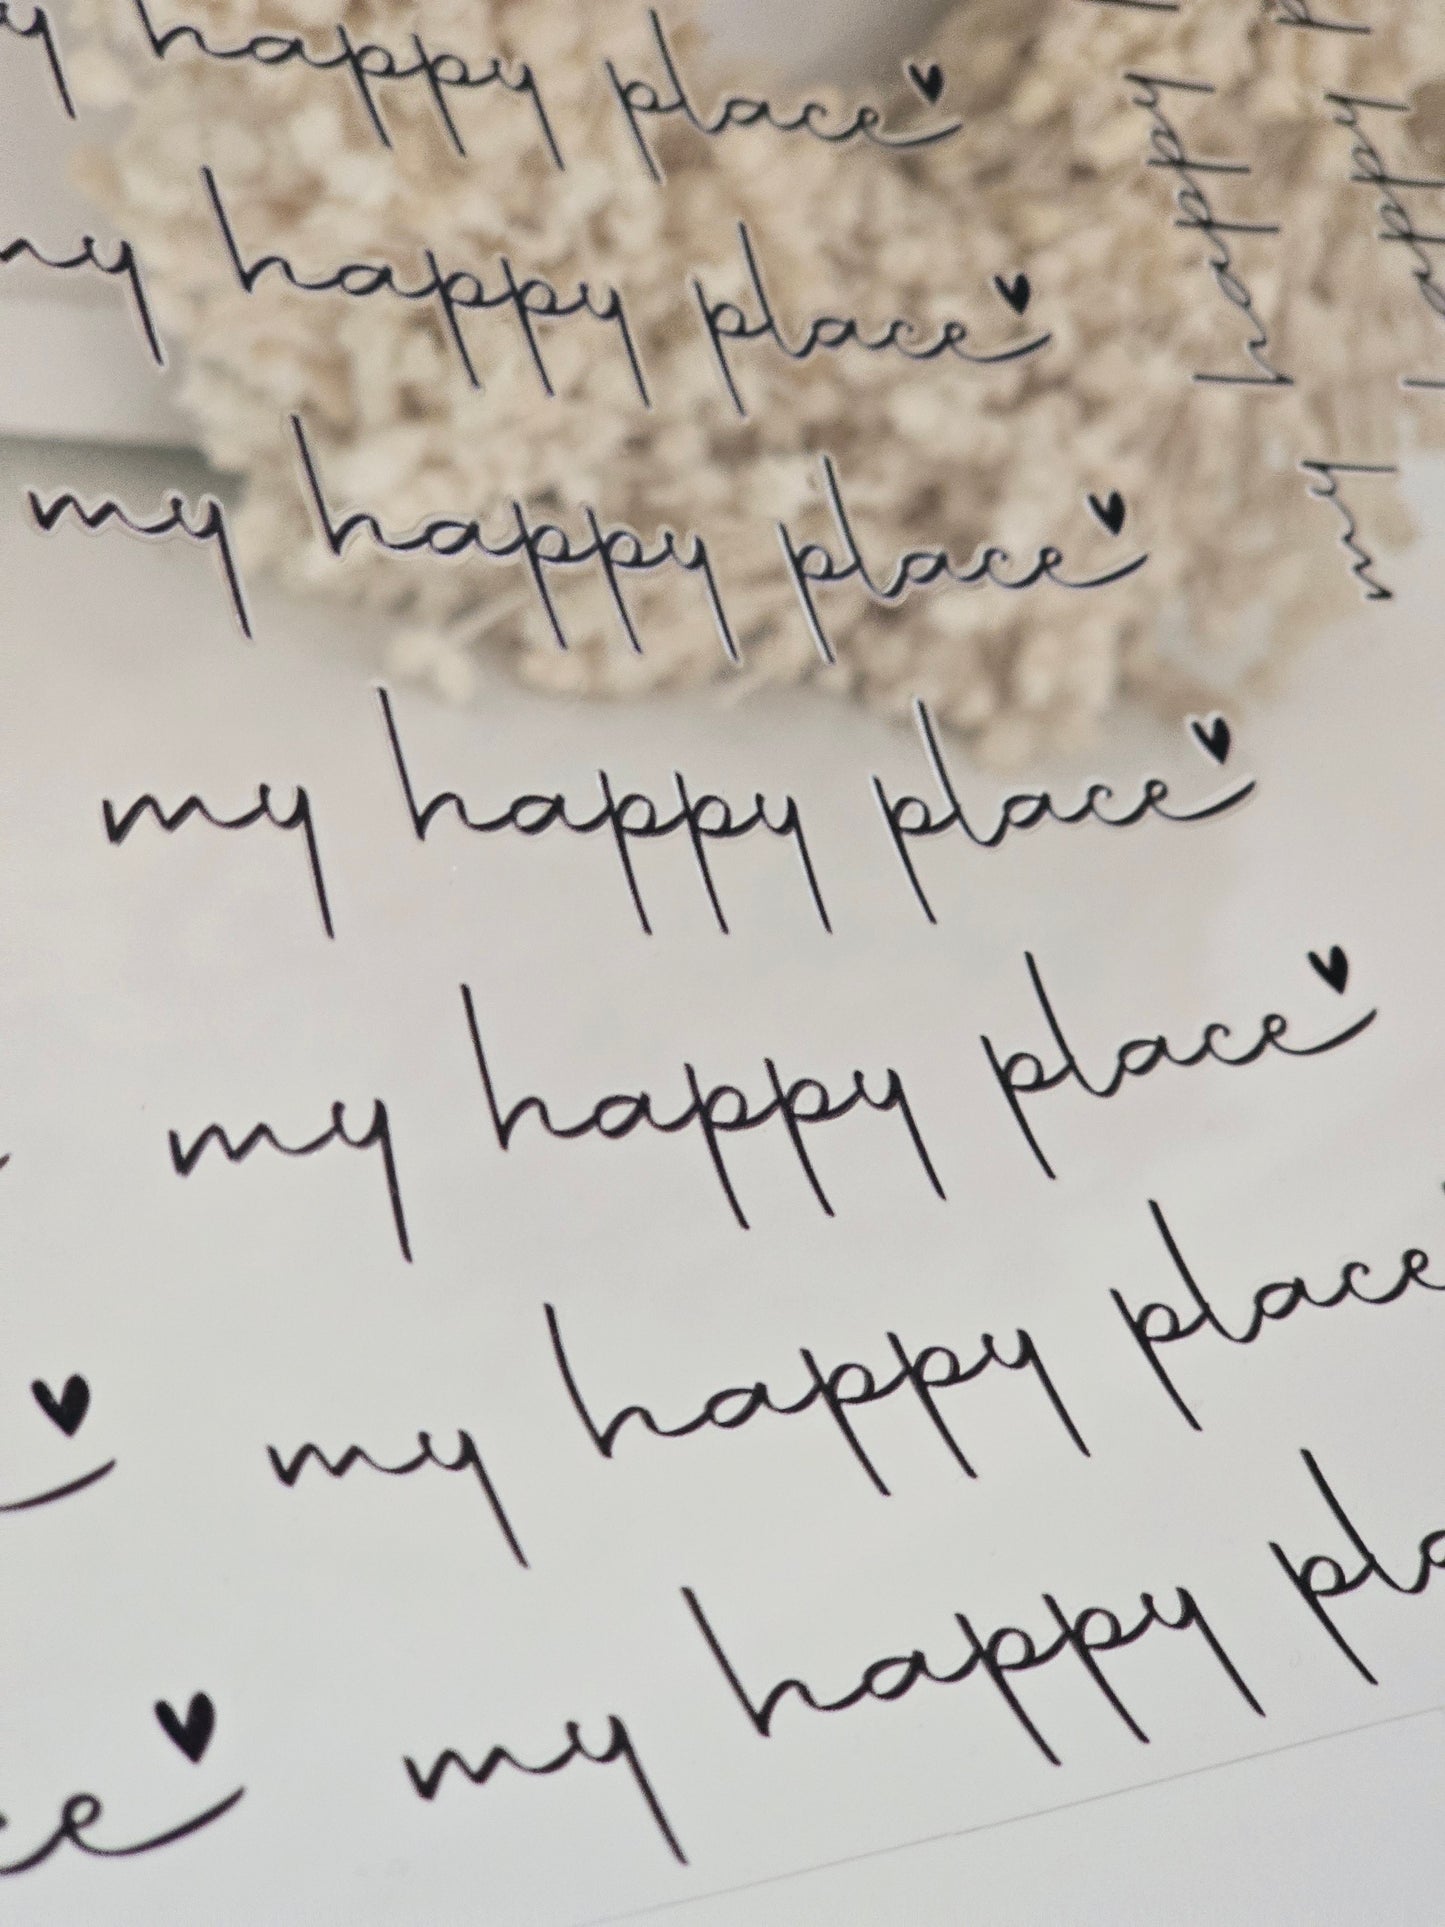 happy place
my happy place
my happy place
my happy place
my happy place
my happy place
my happy
my happy
happy